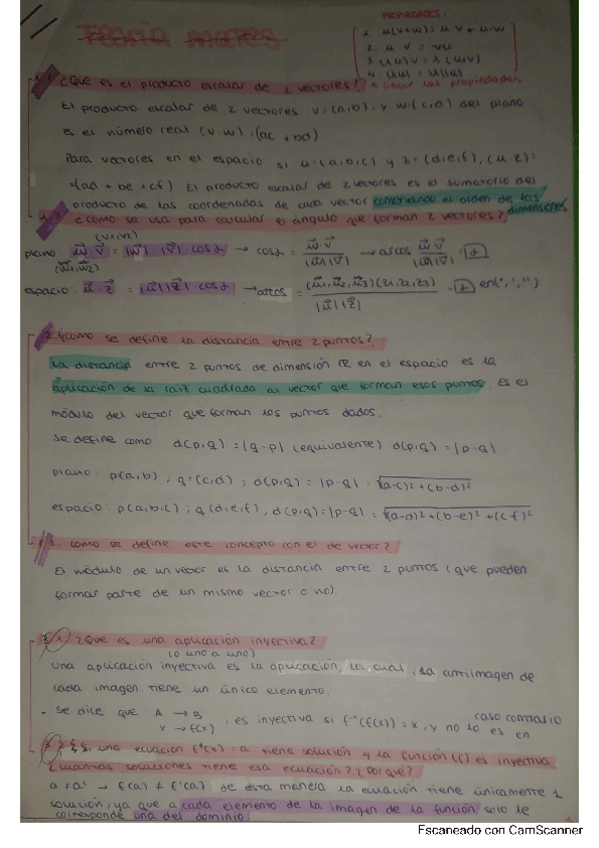 TEORÍA MATES
PROPIEDADES:
1. u(v+w)= u·v + u·w
2. u v = vu
4. u|u| = u||u|
1.1 ¿Qué es el producto escalar de 2 vectores? propiedades.
El producto escalar de 2 vectores v=(a,b), y w=(c,d) del plano
es el número real (v·w)=(ac + bd)
Para vectores en el espacio si u=(a,b,c) y z=(d,e,f), (u·z)=
=(ad + be + cf) El producto escalar de 2 vectores es el sumatorio del
producto de las coordenadas de cada vector conservando el orden de las
dimensiones.
¿Cómo se usa para calcular el ángulo que forman 2 vectores?
(v1,v2)
plano: w·v = |w| |v| cos α → cos α = w·v / |w||v| → arcos w·v / |w||v| = α
espacio: u·z = |u||z| cos α → arcos = (u1,u2,u3)(z1,z2,z3) / |u||z| = α en(°,',")
2. ¿Cómo se define la distancia entre 2 puntos?
La distancia entre 2 puntos de dimensión R en el espacio es la
aplicación de la raíz cuadrada al vector que forman esos puntos. Es el
módulo del vector que forman los puntos dados.
Se define como d(p,q) = |q-p| (equivalente) d(p,q) = |p-q|
plano: p(a,b) ; q=(c,d) ; d(p,q) = |p-q| = √(a-c)²+(b-d)²
espacio: p(a,b,c) ; q(d,e,f) ; d(p,q)=|p-q| = √(a-d)²+(b-e)²+(c-f)²
como se define este concepto con el de vector?
El módulo de un vector es la distancia entre 2 puntos (que pueden
formar parte de un mismo vector o no).
3.1 ¿Qué es una aplicación inyectiva?
(o uno a uno)
Una aplicación inyectiva es la aplicación, la cual, la antiimagen de
cada imagen tiene un único elemento.
- Se dice que A → B , es inyectiva si f⁻¹(f(x)) = x, y no lo es en caso contrario
x → f(x)
una ecuación f(x)=a tiene solución y la función (f) es inyectiva
¿cuántas soluciones tiene esa ecuación? ¿Por qué?
a ≠ a' → f(a) ≠ f'(a) de esta manera la ecuación tiene únicamente 1
solución, ya que a cada elemento de la imagen de la función solo le
corresponde una del dominio.
Escaneado con CamScanner